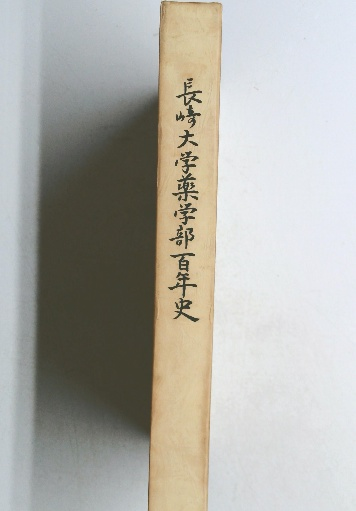 長崎大学薬学部百年史